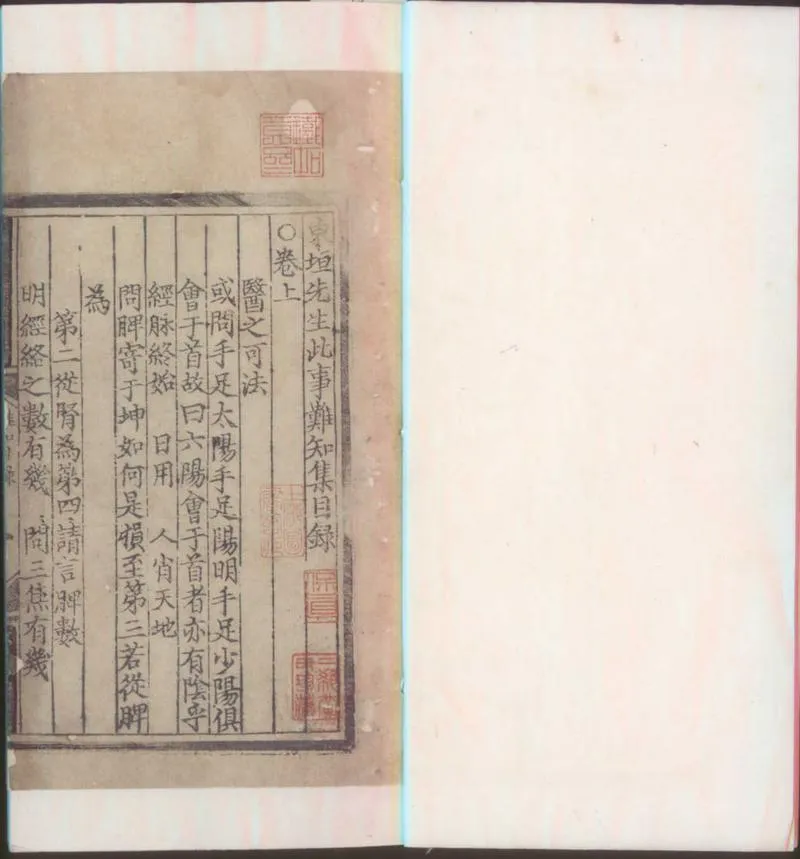 東垣先生此事難知集目録
○卷上
醫之可法
或問手足太陽手足陽明手足少陽俱
會于首故曰六陽會于首者亦有陰乎
經脉終始 日用 人肖天地
問脾寄于坤如何是損至第三若從脾
為
第二從腎為第四請言脾數
明經絡之數有幾 問三焦有幾